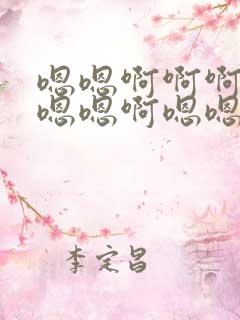 嗯嗯啊啊啊
嗯嗯啊嗯嗯
李定昌